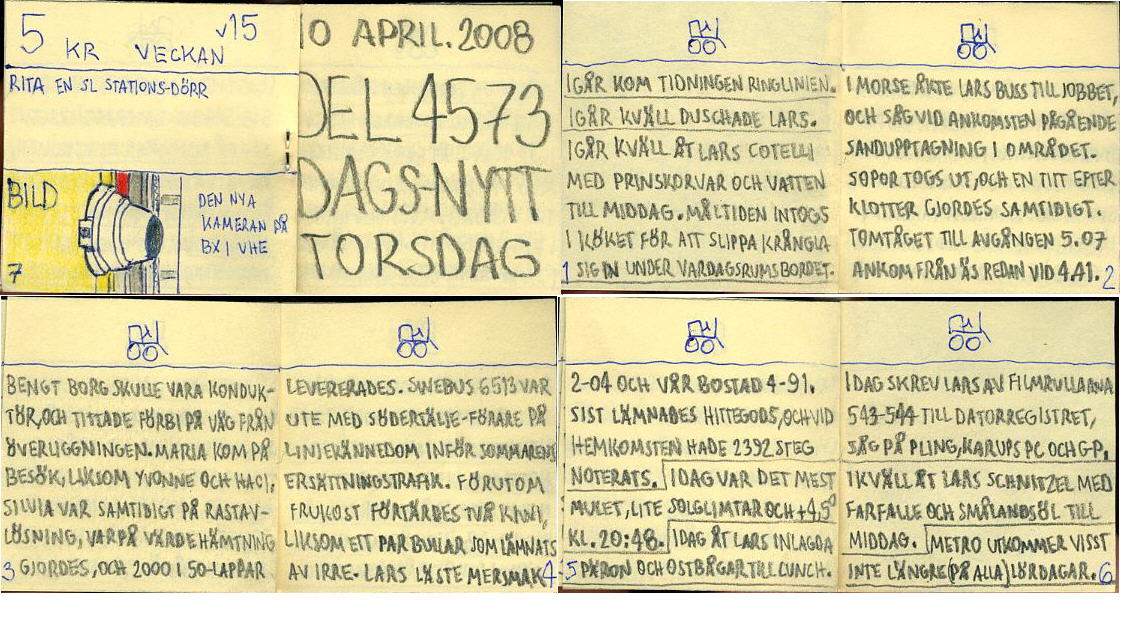 5 KR VECKAN v15
RITA EN SL STATIONS-DÖRR
BILD
DEN NYA
KAMERAN PÅ
BX1 VHE
7
10 APRIL. 2008
DEL 4573
DAGS-NYTT
TORSDAG
IGÅR KOM TIDNINGEN RINGLINIEN.
IGÅR KVÄLL DUSCHADE LARS.
IGÅR KVÄLL ÅT LARS COTELLI
MED PRINSKORVAR OCH VATTEN
TILL MIDDAG. MÅLTIDEN INTOGS
I KÖKET FÖR ATT SLIPPA KRÅNGLA
SIG IN UNDER VARDAGSRUMSBORDET.
1
I MORSE ÅKTE LARS BUSS TILL JOBBET,
OCH SÅG VID ANKOMSTEN PÅGÅENDE
SANDUPPTAGNING I OMRÅDET.
SOPOR TOGS UT, OCH EN TITT EFTER
KLOTTER GJORDES SAMTIDIGT.
TOMTÅGET TILL AVGÅNGEN 5.07
ANKOM FRÅN ÄS REDAN VID 4.41.
2
BENGT BORG SKULLE VARA KONDUK-
TÖR, OCH TITTADE FÖRBI PÅ VÄG FRÅN
ÖVERLIGGNINGEN. MARIA KOM PÅ
BESÖK, LIKSOM YVONNE OCH HACI.
SILVIA VAR SAMTIDIGT PÅ RASTAV-
LÖSNING, VARPÅ VÄRDEHÄMTNING
GJORDES, OCH 2000 I 50-LAPPAR
3
LEVERERADES. SWEBUS 6513 VAR
UTE MED SÖDERTÄLJE-FÖRARE PÅ
LINJEKÄNNEDOM INFÖR SOMMARENS
ERSÄTTNINGSTRAFIK. FÖRUTOM
FRUKOST FÖRTÄRDES TVÅ KIWI,
LIKSOM ETT PAR BULLAR SOM LÄMNATS
AV IRRE. LARS LÄSTE MERSMAK
4
2-04 OCH VÅR BOSTAD 4-91.
SIST LÄMNADES HITTEGODS, OCH VID
HEMKOMSTEN HADE 2392 STEG
NOTERATS. IDAG VAR DET MEST
MULET, LITE SOLGLIMTAR OCH +4,5°
KL. 20:48. IDAG ÅT LARS INLAGDA
PÄRON OCH OSTBÅGAR TILL LUNCH.
5
IDAG SKREV LARS AV FILMRULLARNA
543-544 TILL DATORREGISTRET,
SÅG PÅ PLING, KARUPS PC OCH G-P.
IKVÄLL ÅT LARS SCHNITZEL MED
FARFALLE OCH SMÅLANDSÖL TILL
MIDDAG. METRO UTKOMMER VISST
INTE LÄNGRE (PÅ ALLA) LÖRDAGAR.
6